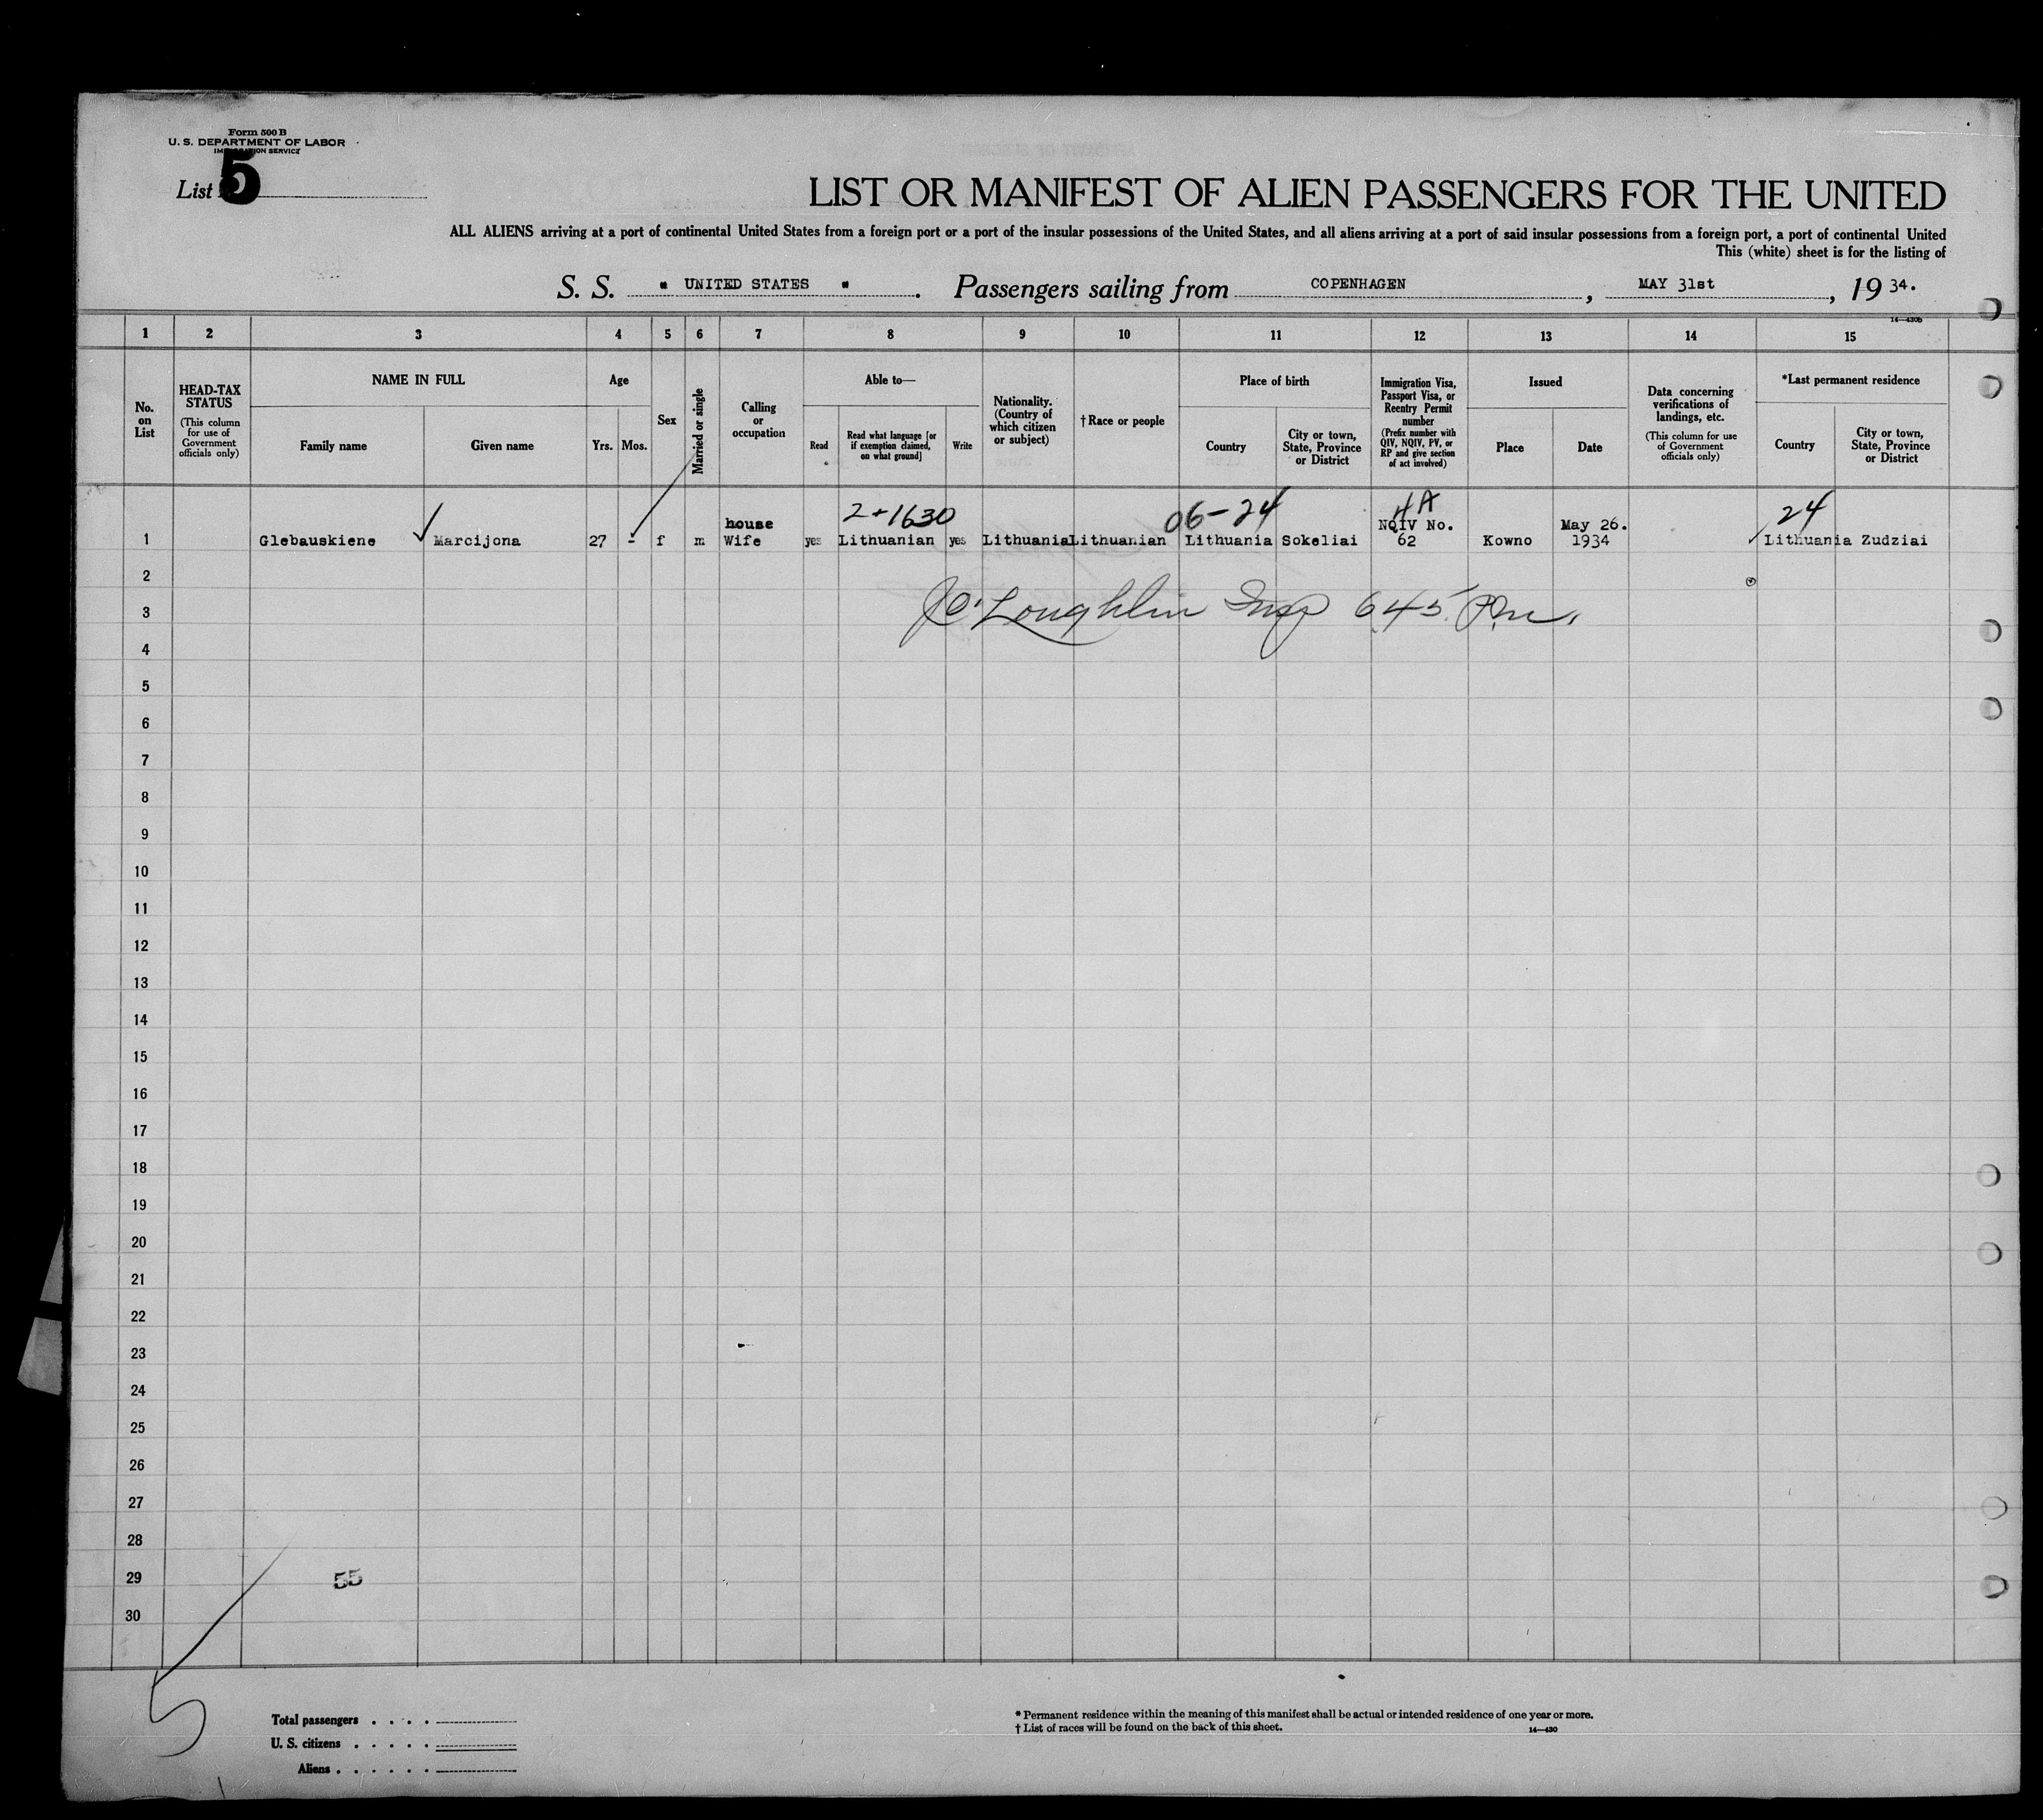 Form 500 B
U. S. DEPARTMENT OF LABOR
IMMIGRATION SERVICE
List 5
LIST OR MANIFEST OF ALIEN PASSENGERS FOR THE UNITED
ALL ALIENS arriving at a port of continental United States from a foreign port or a port of the insular possessions of the United States, and all aliens arriving at a port of said insular possessions from a foreign port, a port of continental United
This (white) sheet is for the listing of
S. S. " UNITED STATES " . Passengers sailing from COPENHAGEN , MAY 31st , 19 34.
14—430b
1 2 3 4 5 6 7 8 9 10 11 12 13 14 15
No. on List
HEAD-TAX STATUS
(This column for use of Government officials only)
NAME IN FULL
Family name
Given name
Age
Yrs. Mos.
Sex
Married or single
Calling or occupation
Able to—
Read
Read what language [or if exemption claimed, on what ground]
Write
Nationality. (Country of which citizen or subject)
†Race or people
Place of birth
Country
City or town, State, Province or District
Immigration Visa, Passport Visa, or Reentry Permit number
(Prefix number with QIV, NQIV, PV, or RP and give section of act involved)
Issued
Place
Date
Data concerning verifications of landings, etc.
(This column for use of Government officials only)
*Last permanent residence
Country
City or town, State, Province or District
2+1630 06-24 4A 24
house NQIV No. May 26.
1 Glebauskiene Marcijona 27 - f m Wife yes Lithuanian yes Lithuania Lithuanian Lithuania Sokeliai 62 Kowno 1934 Lithuania Zudziai
2
3 O'Loughlin Insp 6 45 P.m.
4
5
6
7
8
9
10
11
12
13
14
15
16
17
18
19
20
21
22
23
24
25
26
27
28
29 55
30
5
Total passengers . . . .
U. S. citizens . . . . .
Aliens . . . . . .
* Permanent residence within the meaning of this manifest shall be actual or intended residence of one year or more.
† List of races will be found on the back of this sheet. 14—430